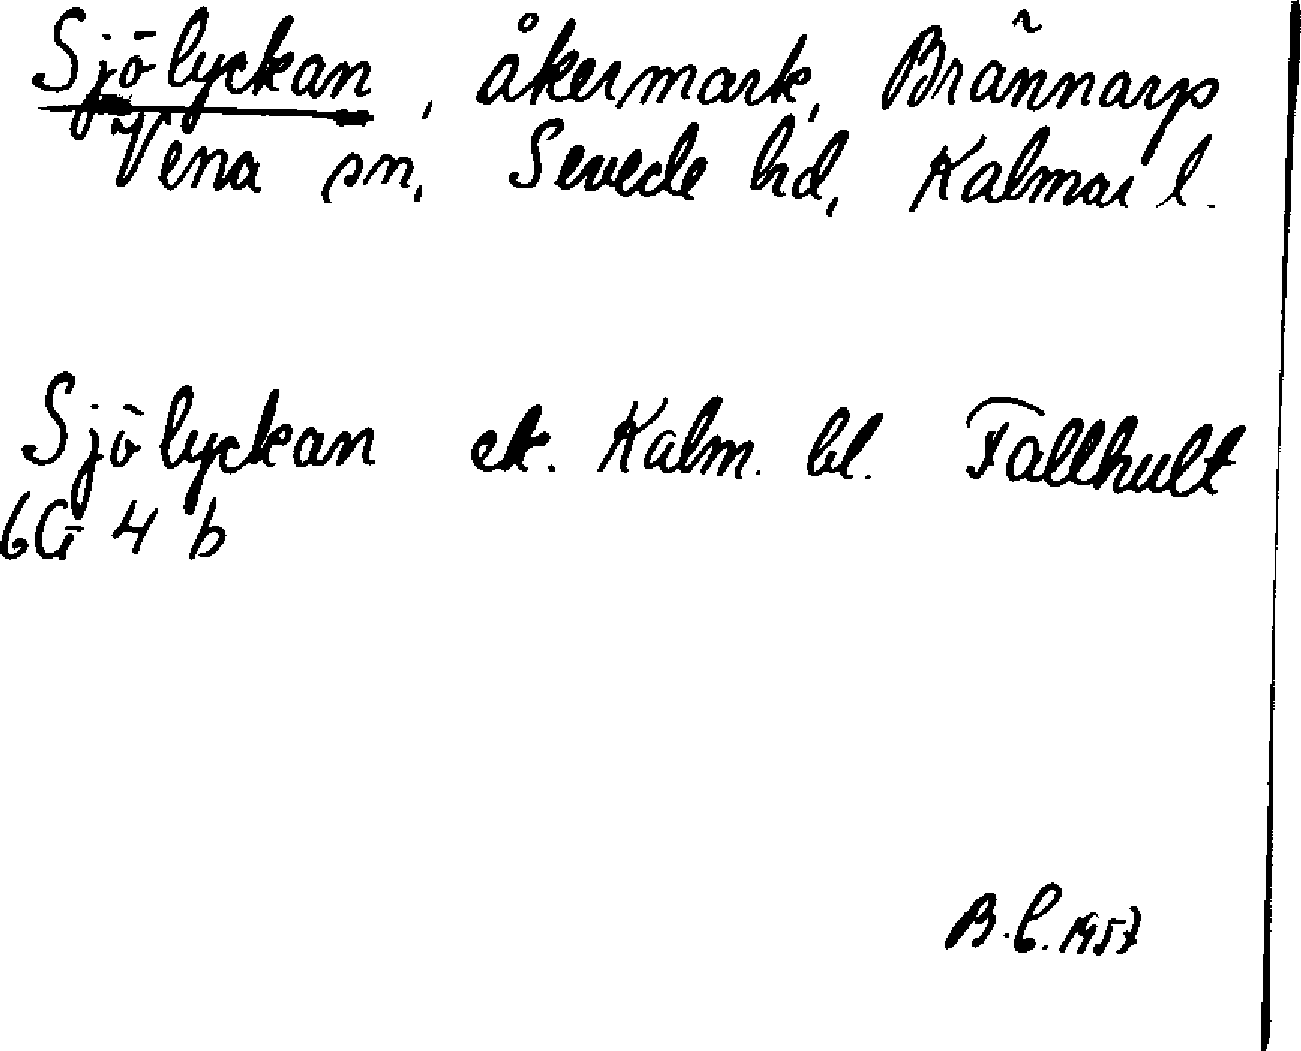 Sjölyckan, åkermark, Brännarp
Vena sn, Sevede hd, Kalmar l.
Sjölyckan ek. Kalm. bl. Fallhult
6G 4 b
B.C. 1957